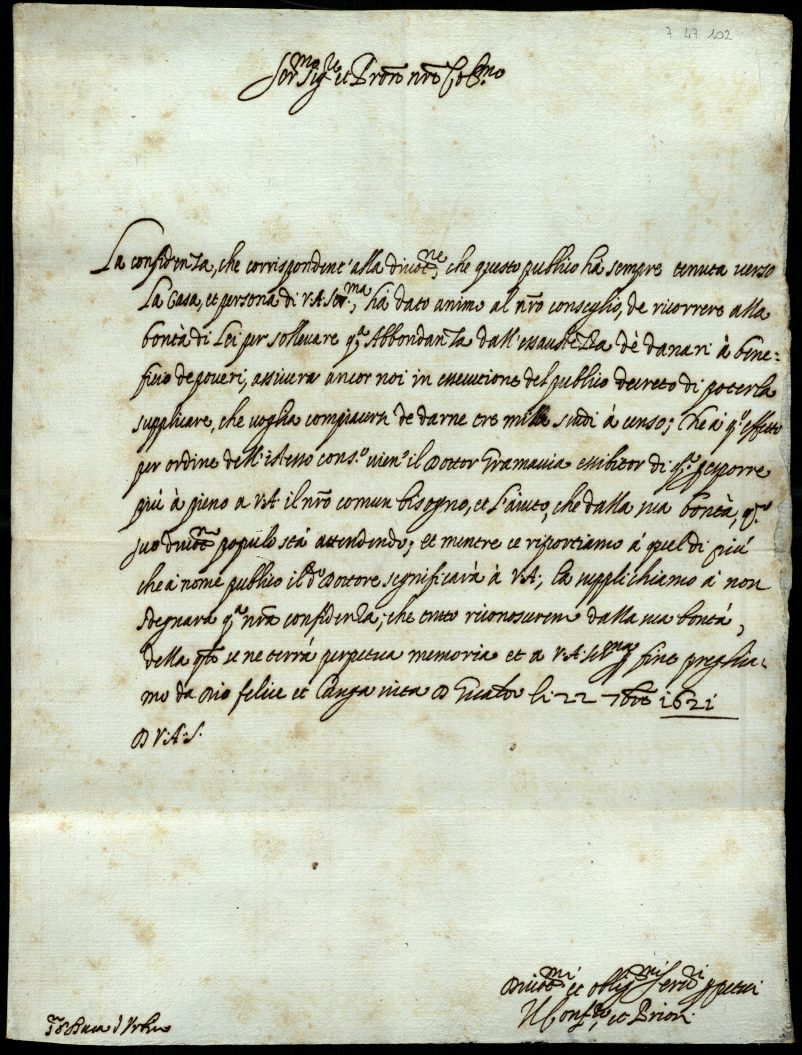 7 47 102
Ser.mo Sig.re et P'ron n'ro Col.mo
La confidenza, che corrispondent' alla divot.ne, che questo publico hà sempre tenuta verso
la Casa, et persona di V.A. Ser.ma, hà dato animo al n'ro conseglio, de ricorrere alla
bontà di Lei per sollevare q.a Abbondanza dall'essaustezza dè danari à bene-
ficio de poveri, assicura ancor noi in essecutione del publico decreto di poterla
supplicare, che voglia compiacersi de darne tre milla scudi à censo; Che à q.o effetto
per ordine dell'istesso cons.o vien' il Dottor Gramavia essibitor di q.a p esporre
più à pieno a V.A. il n'ro comun bisogno, et l'aiuto, che dalla sua bontà, q.o
suo divot.mo popúlo stà attendendo; et mentre ce riportiamo à quel di più
che à nome publico il d.o Dottore significarà à V.A., la supplichiamo à non
sdegnara q.a n'ra confidenza; che tutto riconoscerem' dalla sua bontà,
della q'le se ne terrà perpetua memoria et a V.A. Ser.ma p fine preghia-
mo da Dio felice et longa vita D li 22 7bre 1621
D V.A.S.
Divot.mi et oblig.mi Ser.ri p petui
Il Conf.re, et Priori
S.r Duca d'Urbino